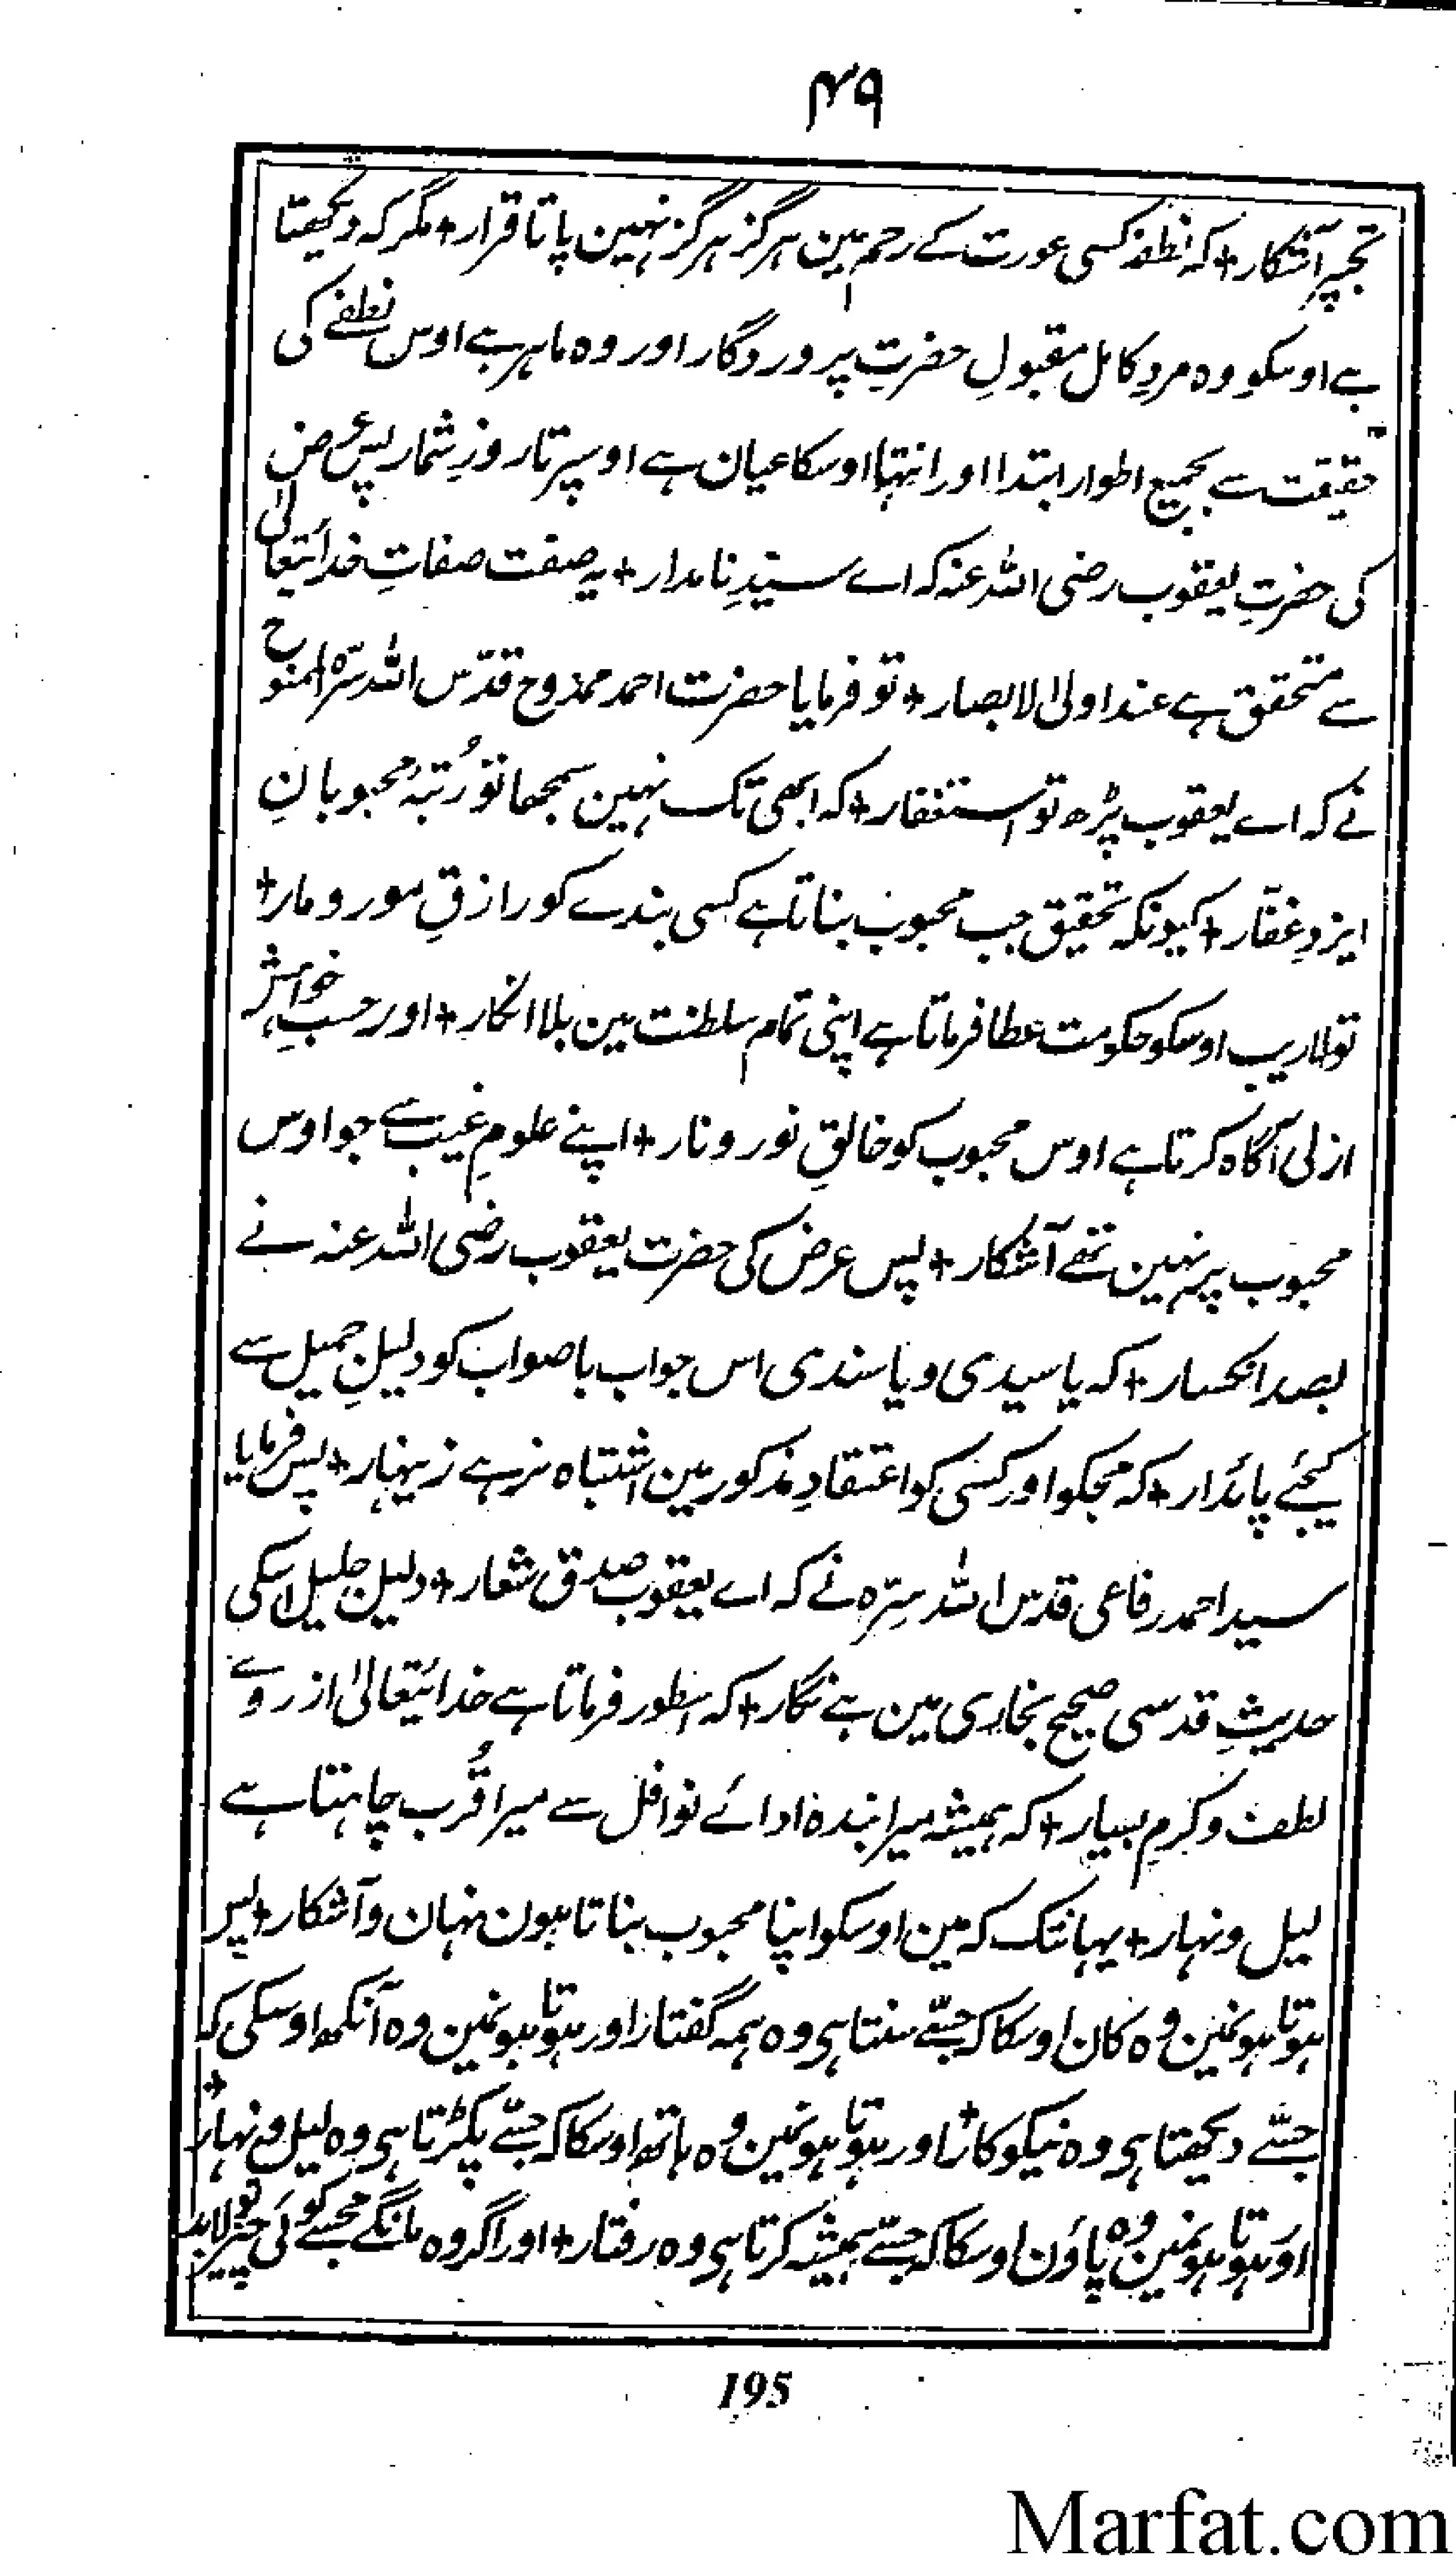 ۴۹
تجپر آشکار + کہ نطفہ کسی عورت کے رحم مین ہرگز ہرگز نہین پاتا قرار + مگر کہ دیکھتا
ہے اوسکو وہ مردِ کامل مقبولِ حضرتِ پروردگار اور وہ ماہر ہے اوس نطفے کی
حقیقت سے بجمیع اطوار ابتدا اور انتہا اوسکا عیان ہے اوسپر تا روزِ شمار پس عرض
کی حضرتِ یعقوب رضی اللہ عنہ کہ اے سیّدِ نامدار + یہ صفت صفاتِ خدائتعالیٰ
سے متحقق ہے عند اولی الابصار + تو فرمایا حضرت احمد ممدوح قدّس اللہ سرّہ الممنوح
نے کہ اے یعقوب پڑھ تو استغفار + کہ ابھی تک نہین سمجھا تو رُتبۂ محبوبانِ
ایزدِ غفّار + کیونکہ تحقیق جب محبوب بناتا ہے کسی بندے کو رازقِ مور و مار +
تو لاریب اوسکو حکومت عطا فرماتا ہے اپنی تمام سلطنت مین بلا انکار + اور حسبِ خواہش
ازلی آگاہ کرتا ہے اوس محبوب کو خالقِ نور و نار + اپنے علومِ غیب سے جو اوس
محبوب پر نہین تھے آشکار + پس عرض کی حضرت یعقوب رضی اللہ عنہ نے
بصد انکسار + کہ یا سیدی و یا سندی اس جواب باصواب کو دلیلِ جمیل سے
کیجئے پائدار + کہ مجکو اور کسی کو اعتقادِ مذکور مین اشتباہ نرہے زینہار + پس فرمایا
سید احمد رفاعی قدس اللہ سِرّہ نے کہ اے یعقوب صدق شعار + دلیلِ جلیل اسکی
حدیثِ قدسی صحیح بخاری مین ہے نگار + کہ اسطور فرماتا ہے خدائیتعالیٰ از روے
لطف و کرمِ بسیار + کہ ہمیشہ میرا بندہ ادائے نوافل سے میرا قُرب چاہتا ہے
لیل و نہار + یہانتک کہ مین اوسکو اپنا محبوب بناتا ہون نہان و آشکار + پس
ہوتا ہونمین وہ کان اوسکا کہ جسّے سنتا ہی وہ ہمہ گفتار اور ہوتا ہونمین وہ آنکھ اوسکی کہ
جسّے دیکھتا ہی وہ نیکوکار + اور ہوتا ہونمین وہ ہاتھ اوسکا کہ جسّے پکڑتا ہی وہ لیل و نہار +
اور ہوتا ہونمین وہ پاؤن اوسکا کہ جسّے ہمیشہ کرتا ہی وہ رفتار + اور اگر وہ مانگے مجھسے کوئی چیز تو لابد
195
Marfat.com